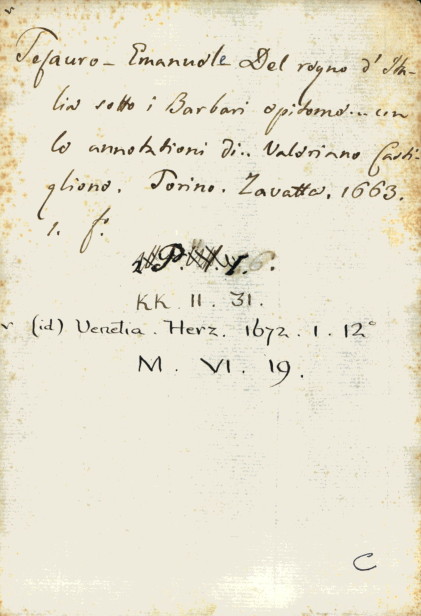 Tesauro - Emanuele Del regno d' Ita-
lia sotto i Barbari epitome... con
le annotationi di.. Valeriano Casti-
glione. Torino. Zavatta. 1663.
1. f.
P. 6.
KK II. 31.
(id) Venetia. Herz. 1672. 1. 12°
M. VI. 19.
C